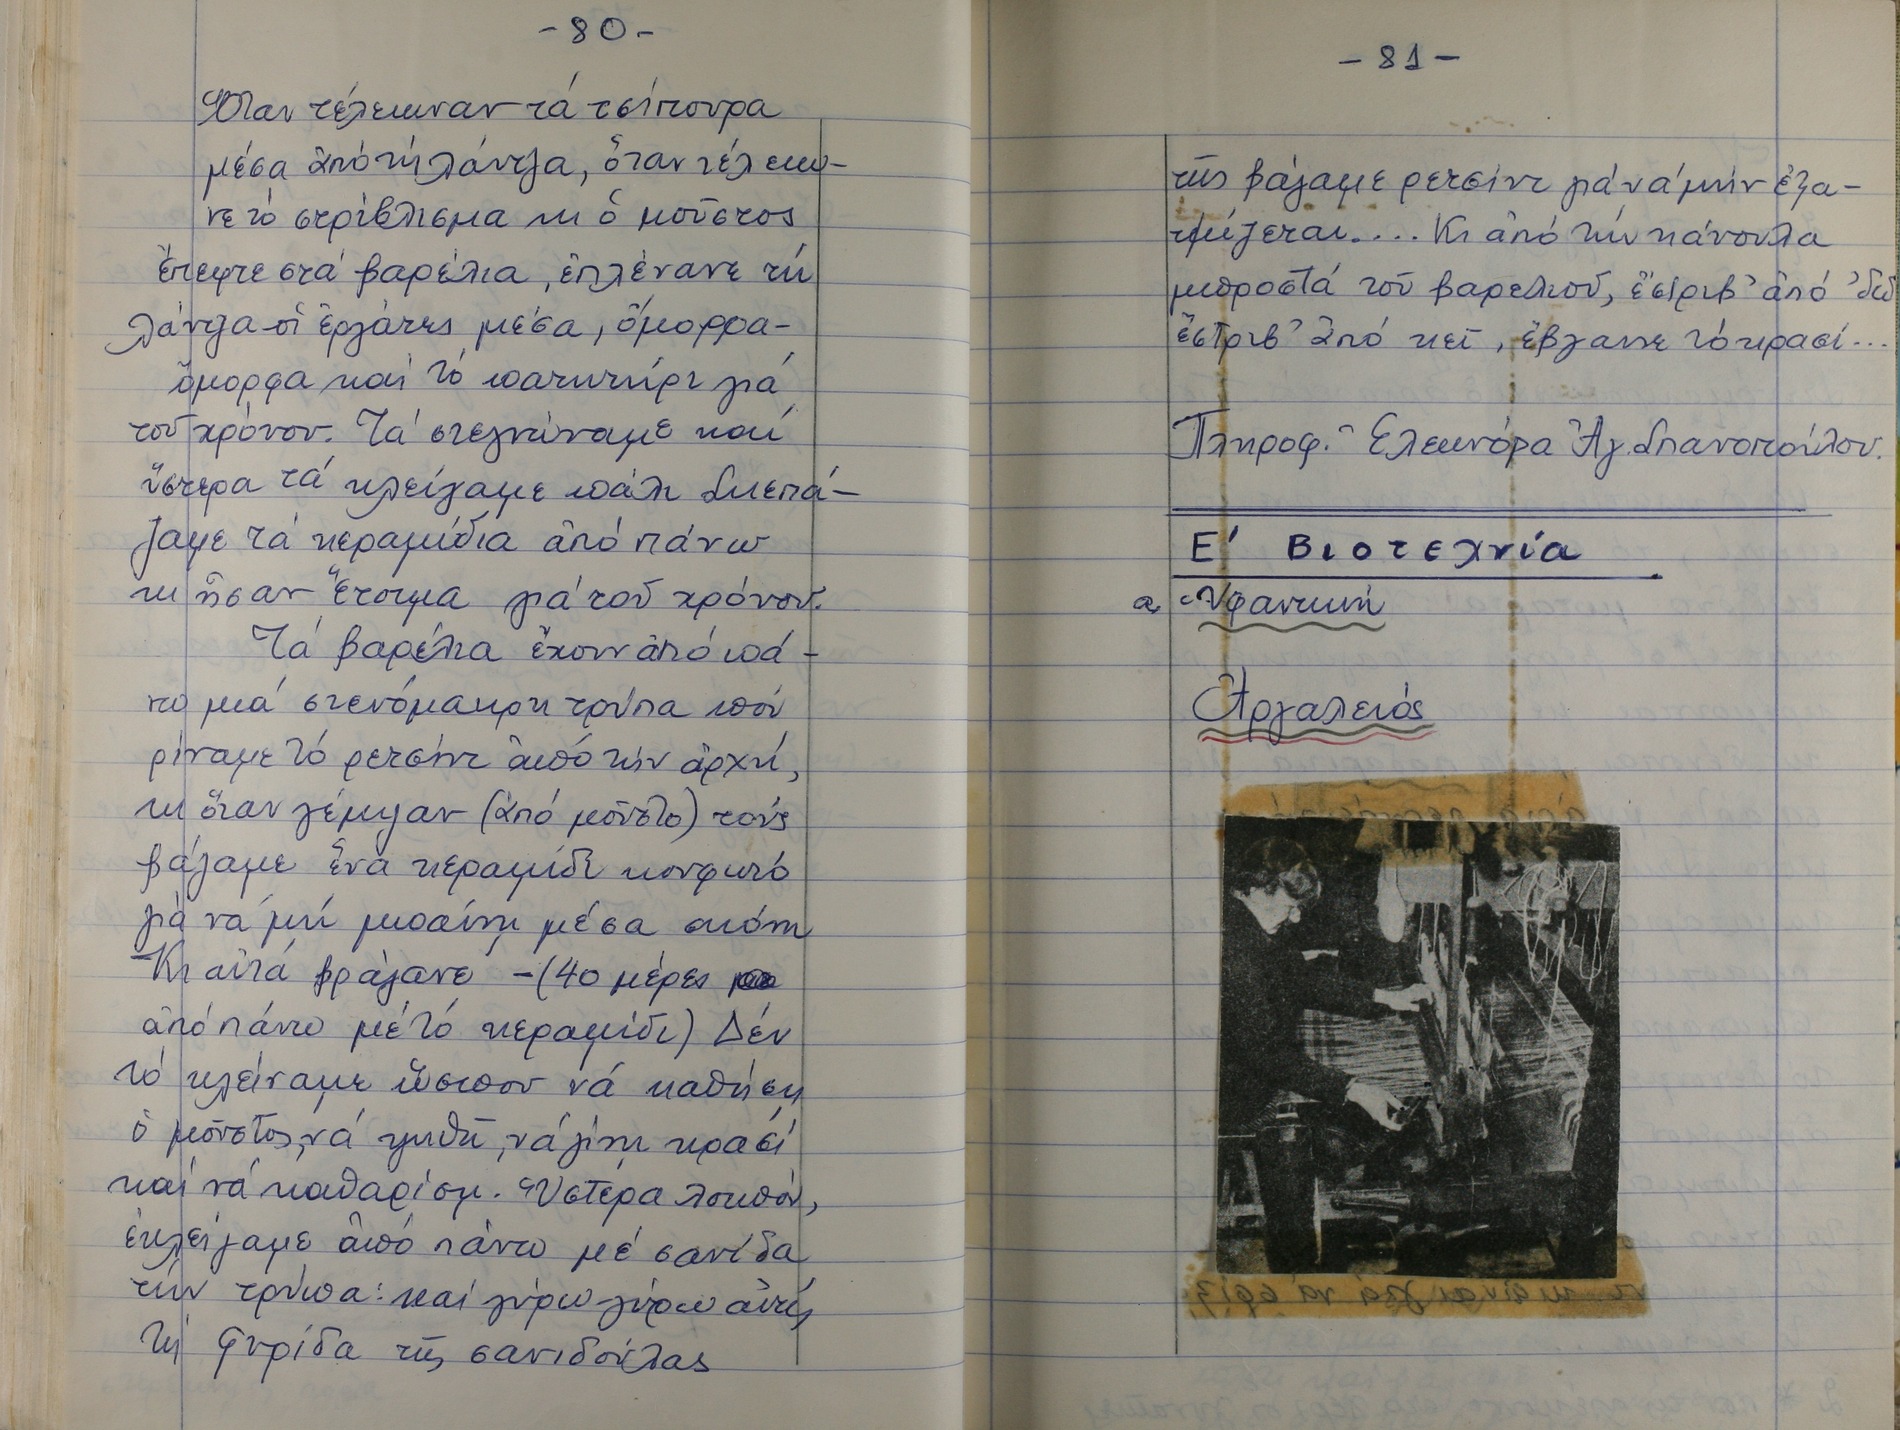 -80-
Ὅταν τέλειωναν τά τσίπουρα
μέσα ἀπό τή λάντζα, ὅταν τέλειω-
νε τό στρίβλισμα κι ὁ μοῦστος
ἔπεφτε στά βαρέλια, ἐπλένανε τή
λάντζα οἱ ἐργάτες μέσα, ὄμορφα-
ὄμορφα καί τό πατητήρι γιά
τοῦ χρόνου. Τά στεγνώναμε καί
ὕστερα τά κλείγαμε πάλι Σκεπά-
ζαμε τά κεραμίδια ἀπό πάνω
κι ἦσαν ἕτοιμα γιά τοῦ χρόνου.
Τά βαρέλια ἔχουν ἀπό πά-
νω μιά στενόμακρη τρύπα πού
ρίναμε τό ρετσίνι ἀπό τήν ἀρχή,
κι ὅταν γέμιζαν (ἀπό μοῦστο) τούς
βάζαμε ἕνα κεραμίδι κουφωτό
γιά νά μή μπαίνη μέσα σκόνη
Κι αὐτά βράζανε -(40 μέρες
ἀπό πάνω μέ τό κεραμίδι) Δέν
τό κλείναμε ὥσπου νά καθήση
ὁ μοῦστος, νά ψηθῆ, νά γίνη κρασί
καί νά καθαρίση. Ὕστερα λοιπόν,
ἐκλείγαμε ἀπό πάνω μέ σανίδα
τήν τρύπα: καί γύρω-γύρω αὐτές
τή φυρίδα τῆς σανιδούλας
-81-
τῆς βάζαμε ρετσίνι γιά νά μήν ἐξα-
τμίζεται.... Κι ἀπό τήν κάνουλα
μπροστά τοῦ βαρελιοῦ, ἔστριβ' ἀπό 'δῶ
ἔστριβ' ἀπό κεῖ, ἔβγαινε τό κρασί...
Πληροφ. Ἐλεωνόρα Ἀγ. Σπανοπούλου.
Ε' Βιοτεχνία
α, Ὑφαντική
Ἀργαλειός